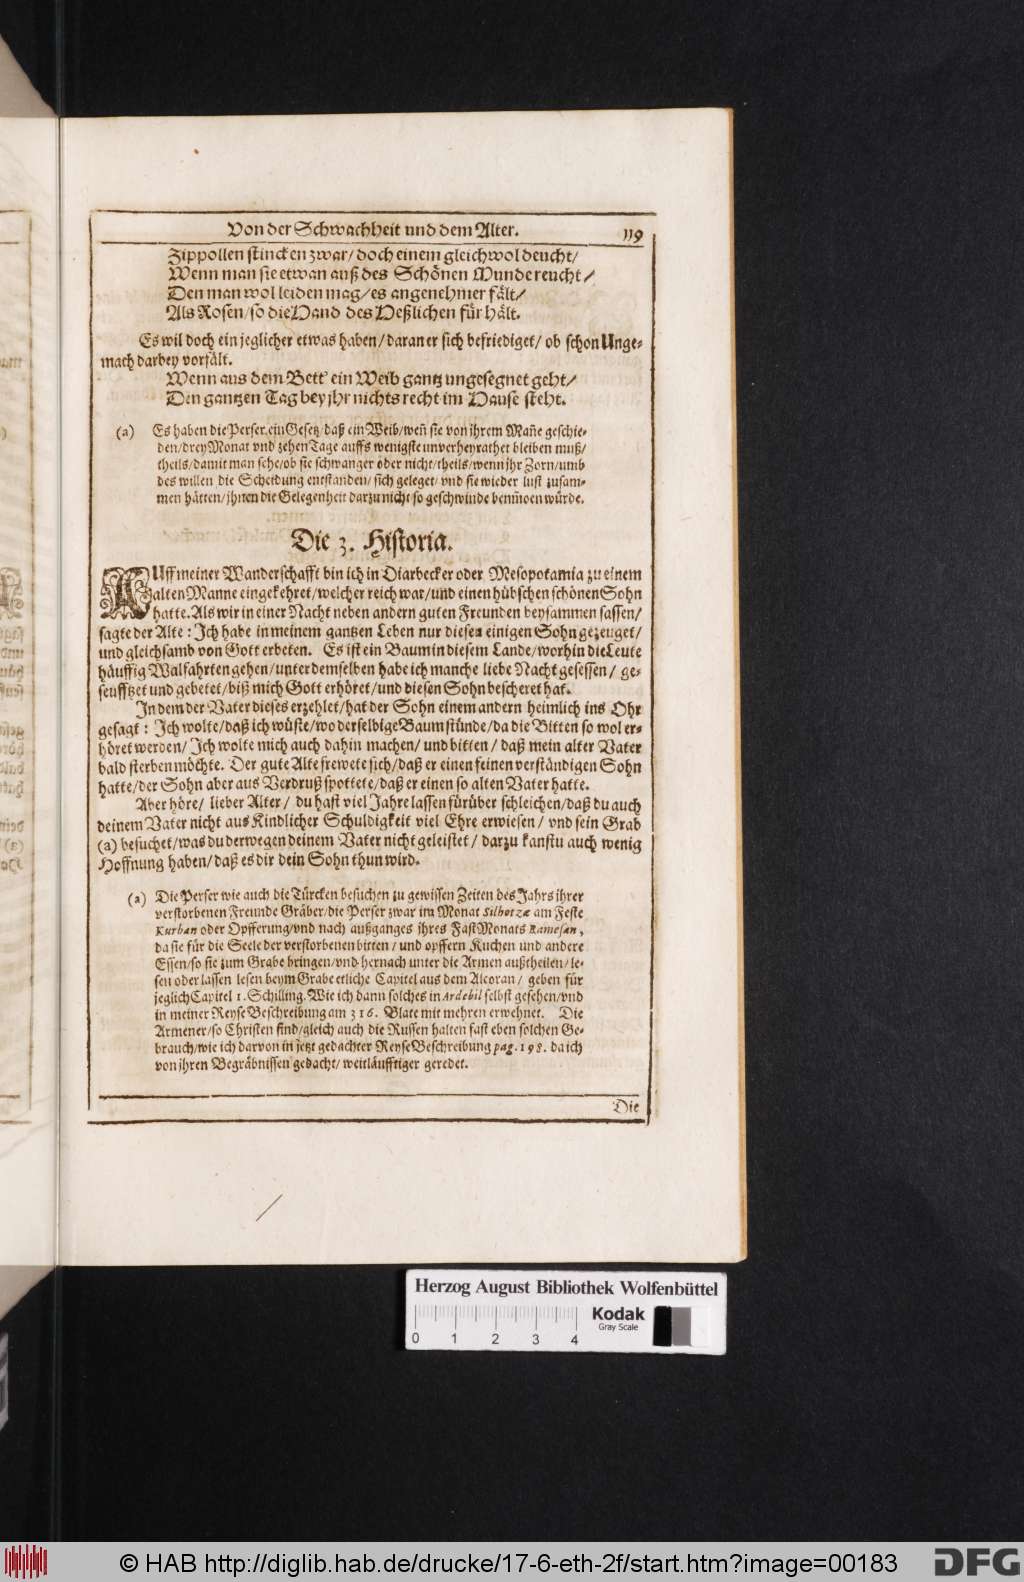 Von der Schwachheit und dem Alter. 119
Zippollen stincken zwar/ doch einem gleichwol deucht/
Wenn man sie etwan auß des Schönen Munde reucht/
Den man wol leiden mag/ es angenehmer fält/
Als Rosen/ so die Hand des Heßlichen für hält.
Es wil doch ein jeglicher etwas haben/ daran er sich befriediget/ ob schon Unge-
mach darbey vorfält.
Wenn aus dem Bett' ein Weib gantz ungesegnet geht/
Den gantzen Tag bey jhr nichts recht im Hause steht.
(a) Es haben die Perser ein Gesetz/ daß ein Weib/ weñ sie von ihrem Mañe geschie-
den/ drey Monat vnd zehen Tage auffs wenigste unverheyrathet bleiben muß/
theils/ damit man sehe/ ob sie schwanger oder nicht/ theils/ wenn jhr Zorn/ umb
des willen die Scheidung entstanden/ sich geleget/ vnd sie wieder lust zusam-
men hätten/ jhnen die Gelegenheit darzu nicht so geschwinde benm̃oen würde.
Die 3. Historia.
AUff meiner Wanderschafft bin ich in Diarbecker oder Mesopotamia zu einem
alten Manne eingekehret/ welcher reich war/ und einen hübschen schönen Sohn
hatte. Als wir in einer Nacht neben andern guten Freunden beysammen sassen/
sagte der Alte: Ich habe in meinem gantzen Leben nur diesen einigen Sohn gezeuget/
und gleichsamb von Gott erbeten. Es ist ein Baum in diesem Lande/ worhin die Leute
häuffig Walfahrten gehen/ unter demselben habe ich manche liebe Nacht gesessen/ ge-
seufftzet und gebetet/ biß mich Gott erhöret/ und diesen Sohn bescheret hat.
In dem der Vater dieses erzehlet/ hat der Sohn einem andern heimlich ins Ohr
gesagt: Ich wolte/ daß ich wüste/ wo derselbige Baum stünde/ da die Bitten so wol er-
höret werden/ Ich wolte mich auch dahin machen/ und bitten/ daß mein alter Vater
bald sterben möchte. Der gute Alte frewete sich/ daß er einen feinen verständigen Sohn
hatte/ der Sohn aber aus Verdruß spottete/ daß er einen so alten Vater hatte.
Aber höre/ lieber Alter/ du hast viel Jahre lassen fürüber schleichen/ daß du auch
deinem Vater nicht aus Kindlicher Schuldigkeit viel Ehre erwiesen/ vnd sein Grab
(a) besuchet/ was du derwegen deinem Vater nicht geleistet/ darzu kanstu auch wenig
Hoffnung haben/ daß es dir dein Sohn thun wird.
(a) Die Perser wie auch die Türcken besuchen zu gewissen Zeiten des Jahrs ihrer
verstorbenen Freunde Gräber/ die Perser zwar im Monat Silhotzæ am Feste
Kurban oder Opfferung/ vnd nach außganges ihres FastMonats Ramesan,
da sie für die Seele der verstorbenen bitten/ und opffern Kuchen und andere
Essen/ so sie zum Grabe bringen/ vnd hernach unter die Armen außtheilen/ le-
sen oder lassen lesen beym Grabe etliche Capitel aus dem Alcoran/ geben für
jeglich Capitel 1. Schilling. Wie ich dann solches in Ardebil selbst gesehen/ vnd
in meiner Reyse Beschreibung am 316. Blate mit mehren erwehnet. Die
Armener/ so Christen sind/ gleich auch die Russen halten fast eben solchen Ge-
brauch/ wie ich darvon in jetzt gedachter Reyse Beschreibung pag. 198. da ich
von jhren Begräbnissen gedacht/ weitläufftiger geredet.
Die
Herzog August Bibliothek Wolfenbüttel
Kodak
Gray Scale
0 1 2 3 4
© HAB http://diglib.hab.de/drucke/17-6-eth-2f/start.htm?image=00183
DFG